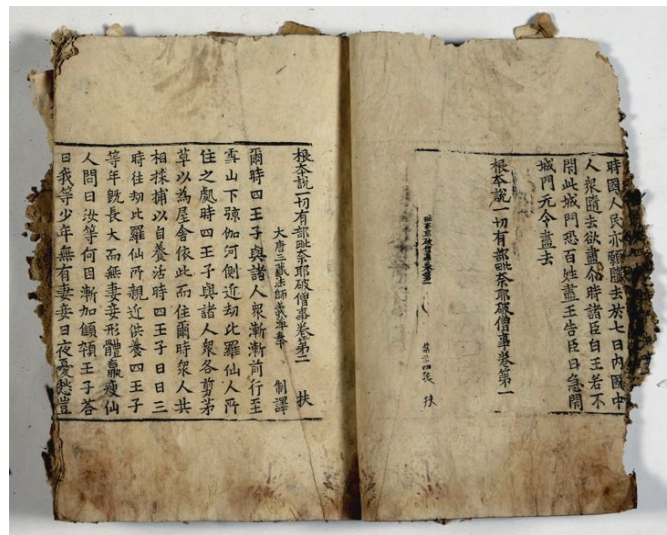 時國人民亦願隨去於七日內國中
人衆隨去欲盡時諸臣白王若不
閇此城門恐百姓盡王告臣曰急閇
城門元令盡去
根本說一切有部毗奈耶破僧事卷第一
扶
根本說一切有部毗奈耶破僧事卷第二 扶
大唐三藏法師義淨奉 制譯
爾時四王子與諸人衆漸漸前行至
雪山下弶伽河側近劫比羅仙人所
住之處時四王子與諸人衆各剪茅
草以為屋舍依此而住爾時衆人共
相採捕以自養活時四王子日日三
時往劫比羅仙所親近供養四王子
等年既長大而無妻妾形體羸瘦仙
人問曰汝等何因漸加顦顇王子荅
曰我等少年無有妻妾日夜憂愁豈